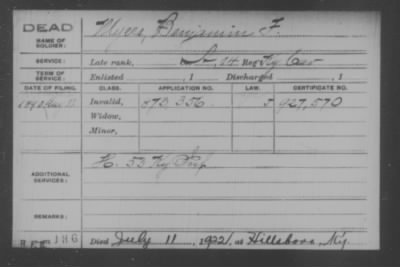 DEAD
NAME OF SOLDIER:
Myers, Benjamin F.
SERVICE:
Late rank, 14 Reg't Ky Cav
TERM OF SERVICE:
Enlisted , 1 Discharged , 1
DATE OF FILING. CLASS. APPLICATION NO. LAW. CERTIFICATE NO.
Invalid, 573.356 5 927,570
Widow,
Minor,
ADDITIONAL SERVICES:
H. 53 Ky Inf
REMARKS:
Died July 11, 1922, at Hillsboro, Ky.